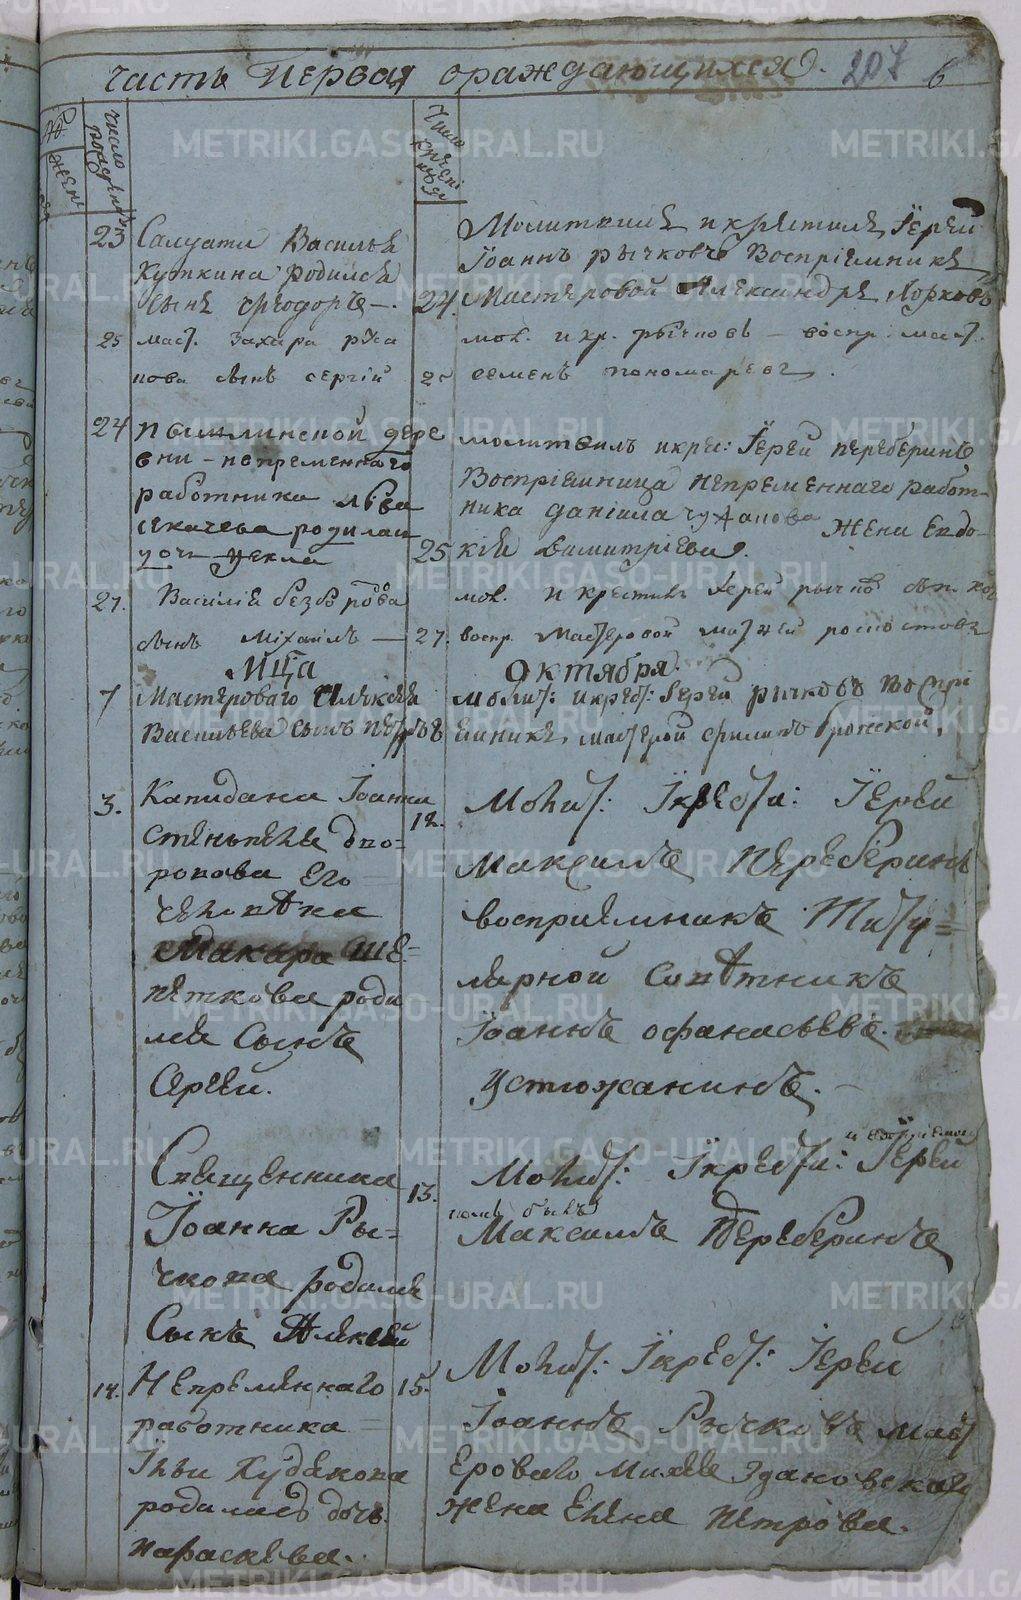 часть первая ораждающихся. 207 6
число рожденія
число крещенія
женс
23 Салдата Василья
Куткина родился
сынъ Ѳеодоръ —
Молитвилъ и крестилъ Іерей
Іоаннъ Рычковъ Воспріемникъ
24. Мастеровой Александръ Хорковъ
25 маст. Захара Руса
нова сынъ Сергій
мол. и кр. Рычковъ — воспр. маст.
25 Семенъ Пономаревъ.
24 Пышминской дере
вни — непременнаго
работника Льва
Секачева родилась
дочь Ѳекла
молитвилъ и крес: Іерей Переберинъ
Воспріемница непременнаго работ-
ника Даніила жена Евдо-
25 кія Димитріева.
27. Василія Безбородова
сынъ Михаилъ —
мол. и крестилъ Іерей Рычков
27. воспр. Мастеровой Матѳей
Мца Октября.
7 Мастероваго Алексея
Васильева сынъ Петръ
молит: и крест: Іерей Рычковъ воспрі
емникъ мастерой Филипъ
3. Капидана Іоанна
Степыгева
ропова его
человѣка
Макара Ше=
петкова роди
лся Сынъ
Сергей.
12. Молит: Ікрести: Іерей
Максимъ Переберинъ
восприемникъ Титу=
лярной совѣтникъ
Іоаннъ Офанасьевъ.
Устюжанинъ. —
Священника
Іоанна Ры=
чкова родился
Сынъ Алексей
13. Молит: Ікрести: Іерей и восприемни
комъ былъ
Максимъ Переберинъ
14. Непременнаго
работника =
Ильи Худякова
родилась дочь
Параскева.
15. Молит: Ікрест: Іерей
Іоаннъ Рычковъ маст
ероваго Здановскаго
жена Елена Петрова.
METRIKI.GASO-URAL.RU